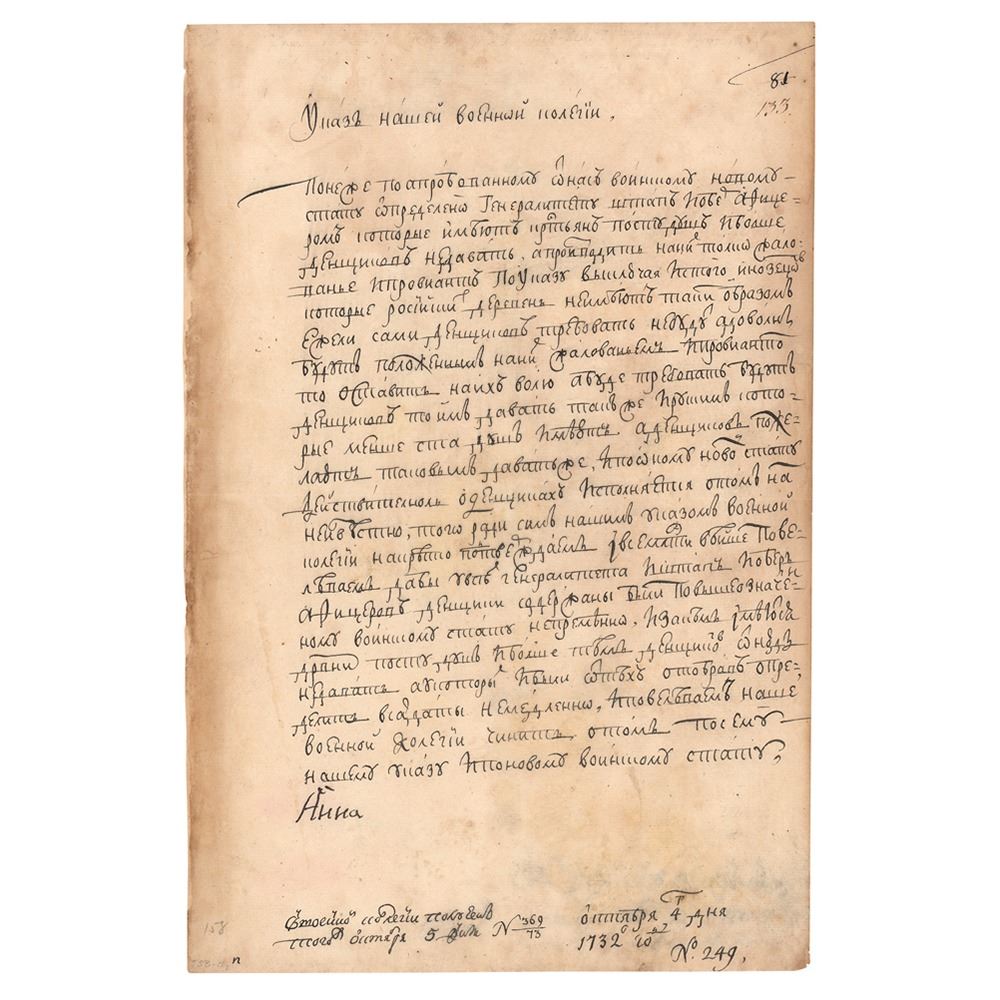 81
133.
Указъ нашей военной колегїи,
Понеже поапробованному ѿнасъ воинскому новому
стату ѿпределено Генералитету штапъ Иобе афице=
ромъ которые имѣютъ крстьянъ постудушъ Иболше
денщиковъ недавать, апроизводить наних толко жало=
ванье Ипровиантъ Поуказу выключая Истого иноземцов
которые росїйских деревень неимѣютъ таким образомъ
Ежели сами денщиковъ требовать небудут адоволны
будутъ положеннымъ наних жалованьемъ Ипровиантом
то оставить наихъ волю абуде требовать будутъ
денщиковъ то имъ давать также Ирускимъ кото=
рые менше ста душъ Имѣютъ аденщиковъ поже=
лаютъ таковымъ даватьже, Ипооному новому стату
действителноль оденщикахъ Исполняется отомъ намъ
неизвѣстно, того ради симъ нашимъ указомъ военной
колегїи накрѣпко потвеждаемъ Iвсемлтивѣйше Пове=
лѣваемъ дабы увсего генералитета Иштапъ Иоберъ
афицеровъ денщики содержаны были Повышеозначен=
ному воинскому стату непремѣнно, Изакѣмъ Iмѣются
крстьян постудушъ Иболше тѣмъ денщиков ѿнюдь
недавать аукоторых Ибыли ѿтѣхъ отобравъ опре=
делить всолдаты немедленно, Иповелѣваемъ нашей
военной колегїи чинить отомъ посему
нашему указу Ипоновому воинскому стату,
Анна
Ввоенной колегїи полученъ
тогож октября 5 дня № 369/73
октября 4 г дня
1732 го году
№. 249,
158